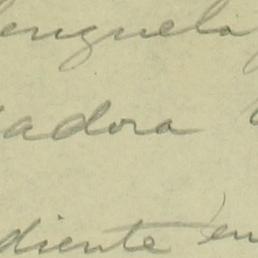 enguela
adora
diente en